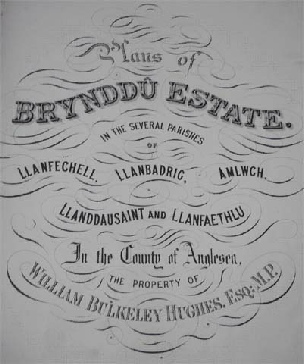 Plans of
BRYNDDÛ ESTATE.
IN THE SEVERAL PARISHES
OF
LLANFECHELL, LLANBADRIG, AMLWCH,
LLANDDAUSAINT AND LLANFAETHLU
In the County of Anglesea,
THE PROPERTY OF
WILLIAM BULKELEY HUGHES, ESQr. M.P.